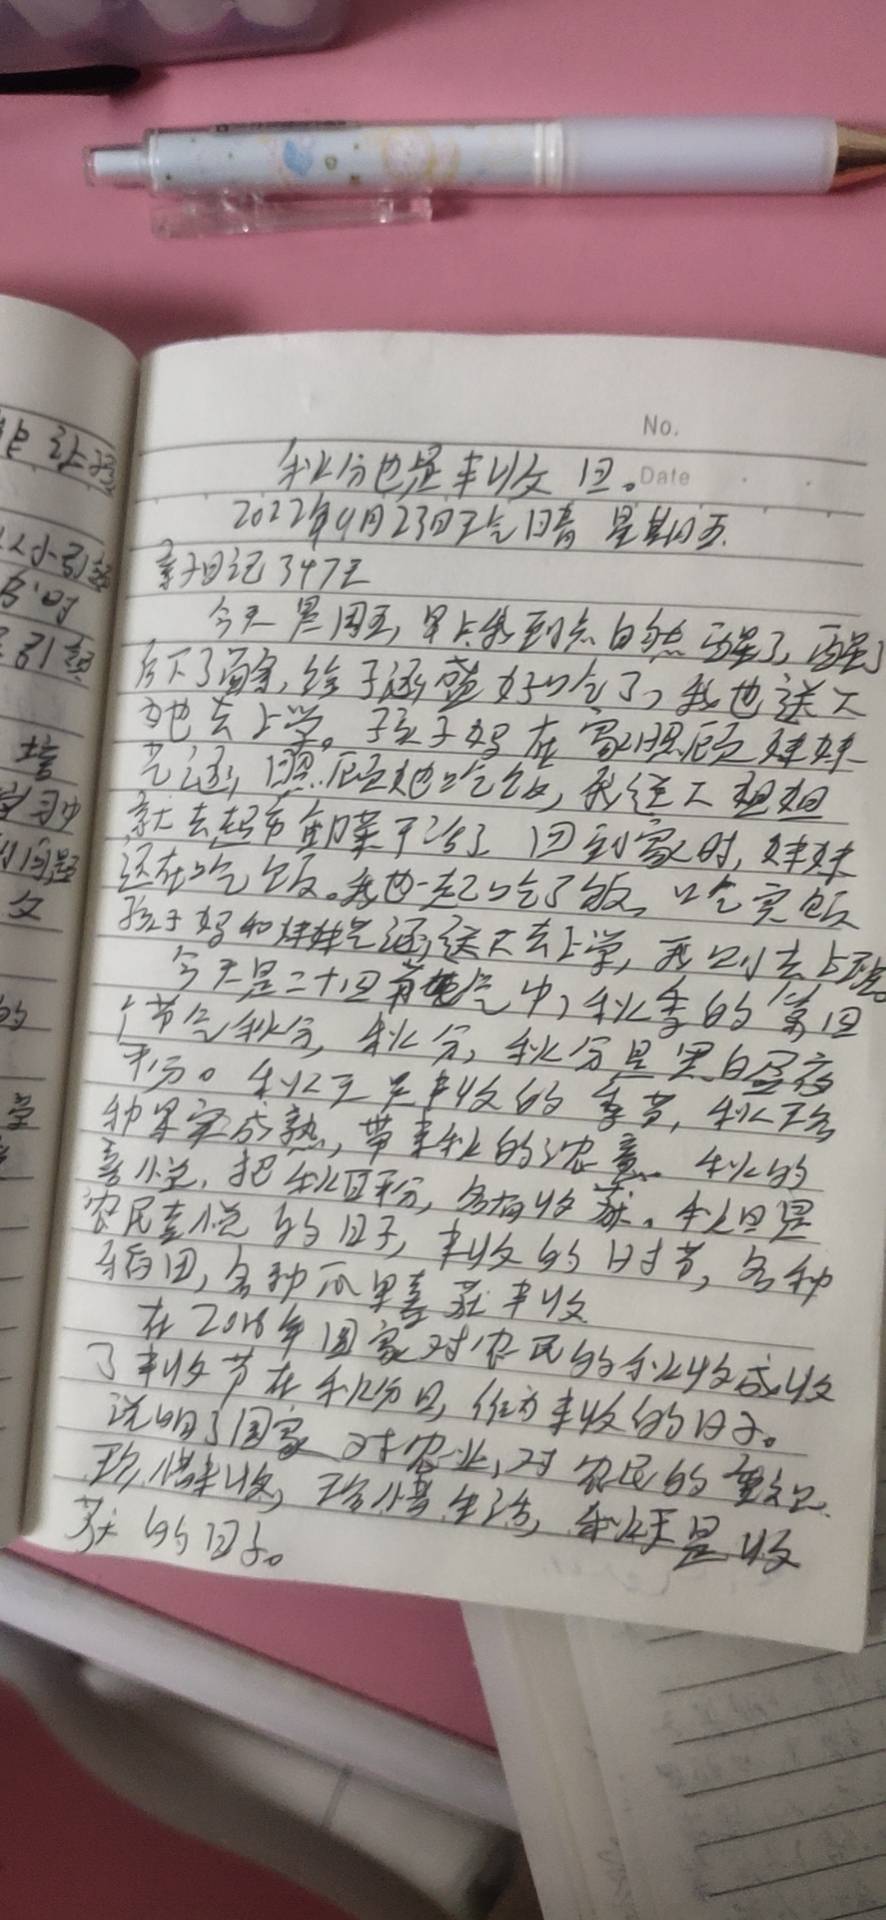 No.
秋分也是丰收日。Date
2022年9月23日天气晴 星期五.
亲子日记347天
今天是周五,早上我到点自然醒了,醒了
后下了面条,给子涵盛好吃了,我也送大
她去上学。孩子妈在家照顾妹妹
艺涵,照顾她吃饭,我送大姐姐
就去超市卸菜干活了 回到家时,妹妹
还在吃饭。我也一起吃了饭,吃完饭
孩子妈和妹妹艺涵送大去上学,我则去上班。
今天是二十四节气中,秋季的第四
个节气秋分,秋分,秋分是黑白昼夜
平分。秋天是丰收的季节,秋天各
种果实成熟,带来秋的浓意. 秋的
喜悦,把秋日平分,各有收获。秋日是
农民喜悦的日子,丰收的时节,各种
稻田,各种瓜果喜获丰收
在2018年国家对农民的秋收成收
了丰收节在秋分日,作为丰收的日子。
说明了国家对农业,对农民的重视.
珍惜丰收,珍惜生活,秋天是收
获的日子。